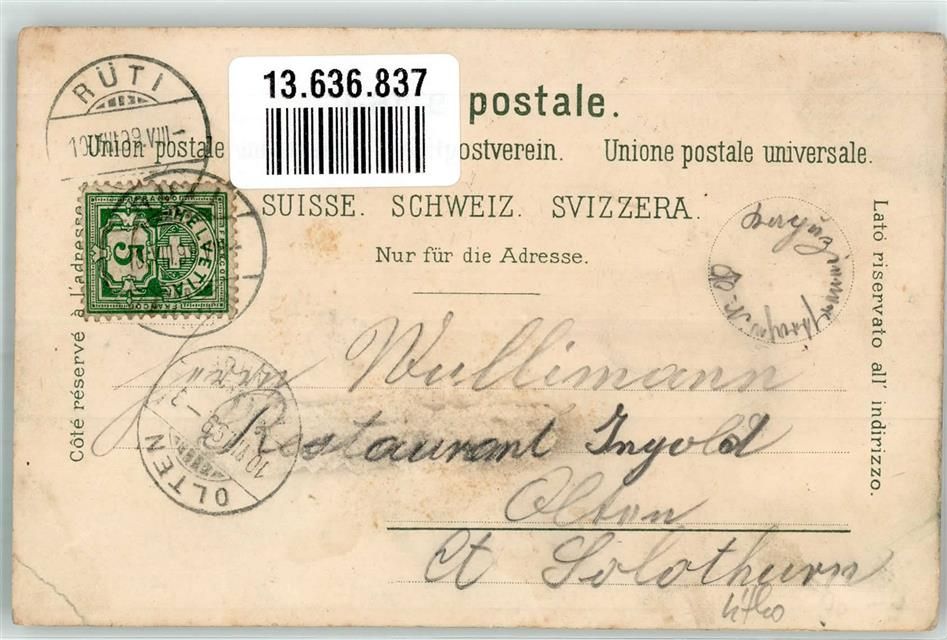 RÜTI
13.636.837
postale.
Union postale ostverein. Unione postale universale.
SUISSE. SCHWEIZ. SVIZZERA.
Nur für die Adresse.
Côté réservé à l'adresse
Lato riservato all' indirizzo.
FRANCO
HELVETIA
5
Wullimann
Restaurant Ingold
Olten
Ct Solothurn
OLTEN
litho